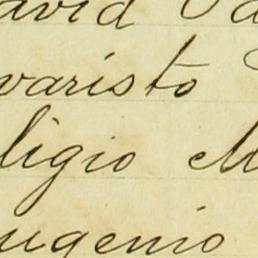 avid Va
varisto
ligio M
ugenio